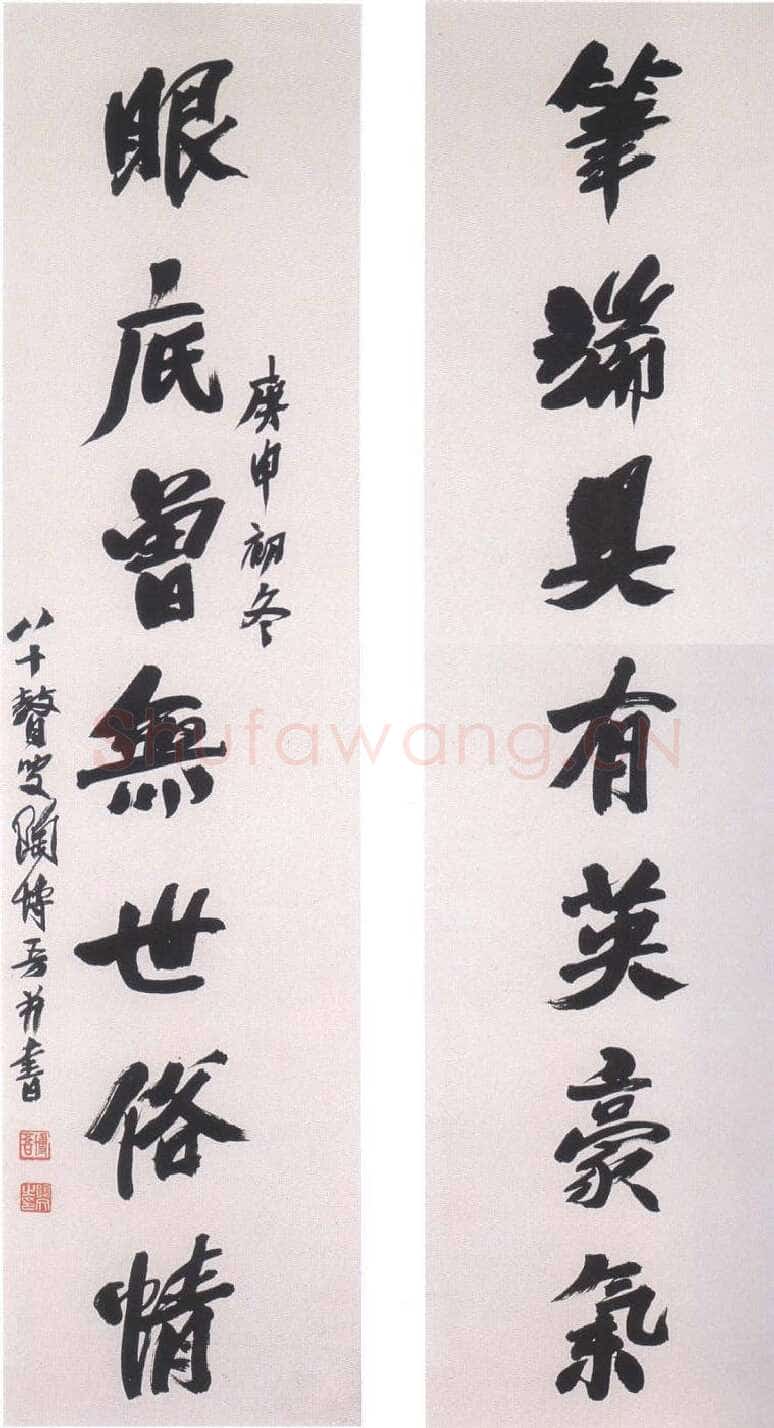 筆端具有英豪氣
眼底曾無世俗情
庚申初冬
八十瞽叟陶博吾并書
博吾
Shufawang.CN